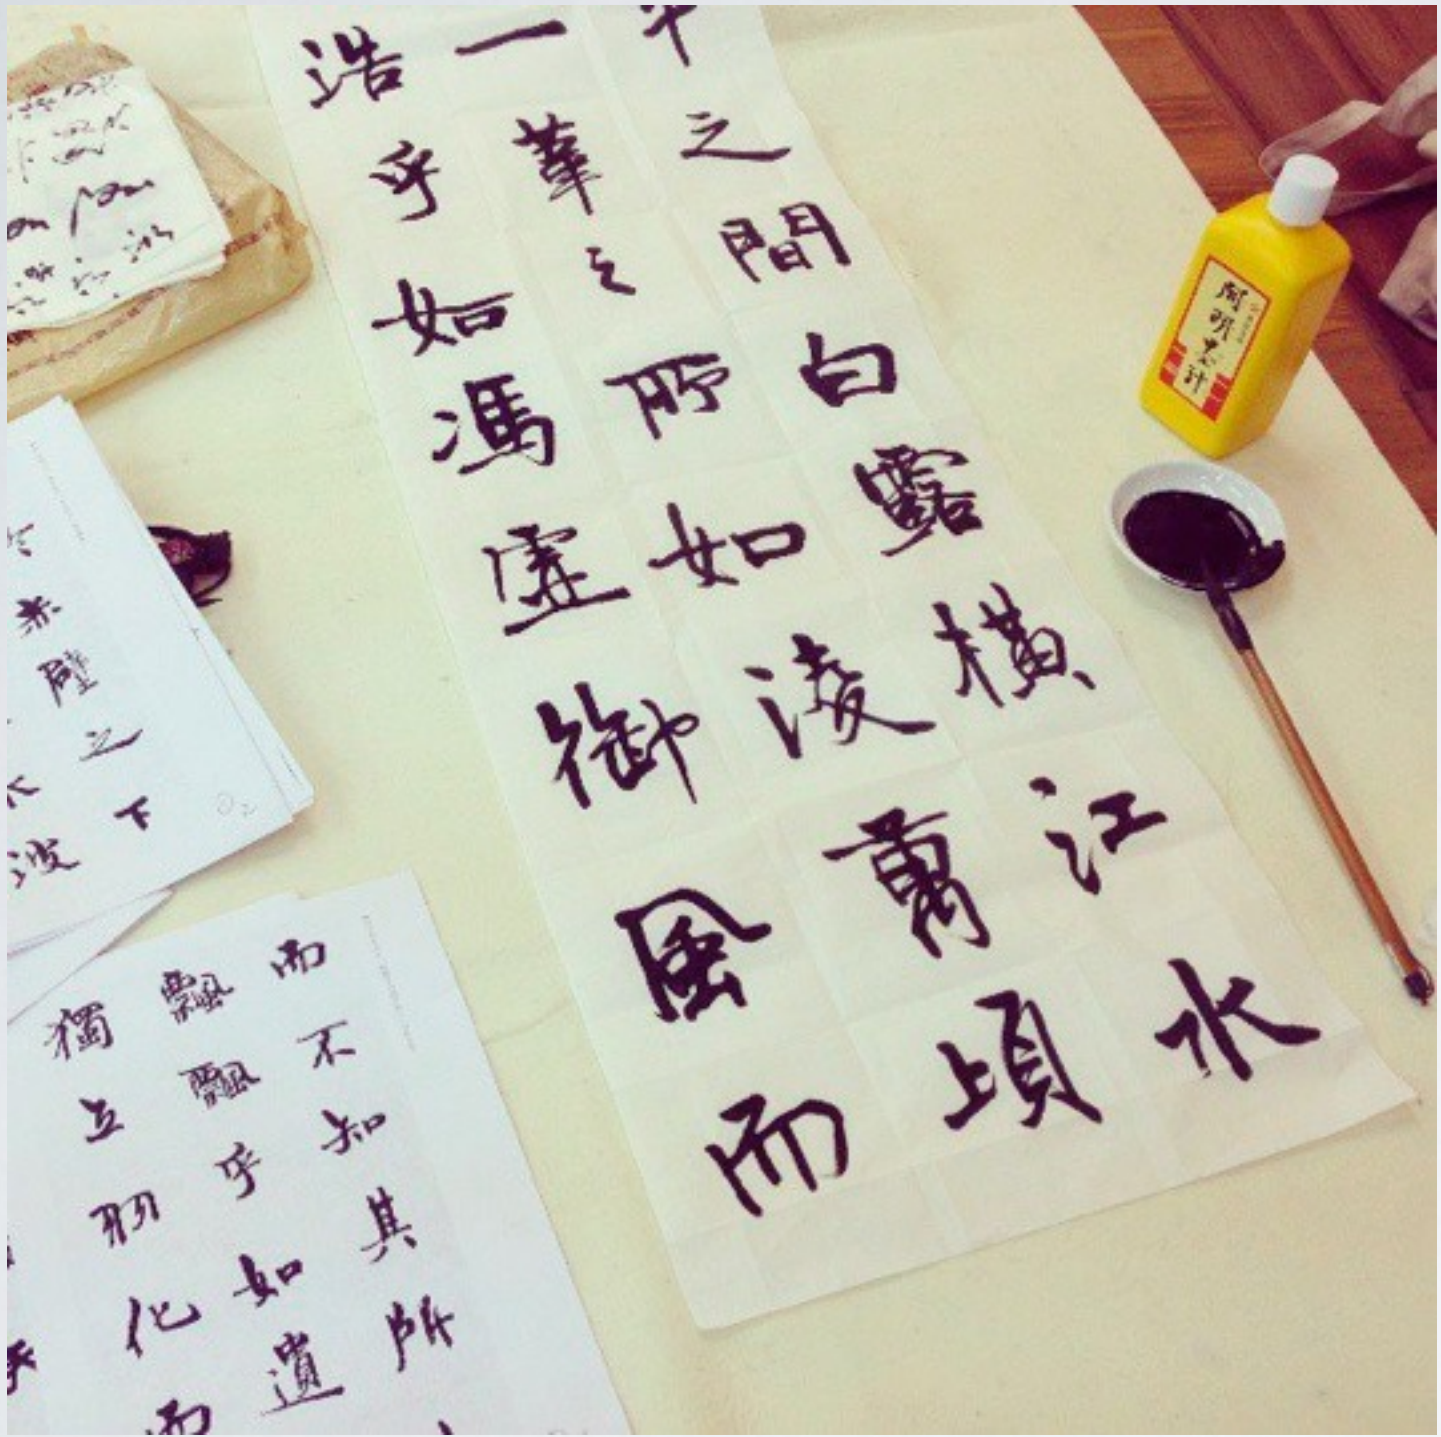 牛之間白露橫江水
一葦之所如淩萬頃
浩乎如馮虛御風而
開明墨汁
赤壁之下
波
而不知其所
飄飄乎如遺
獨立羽化而